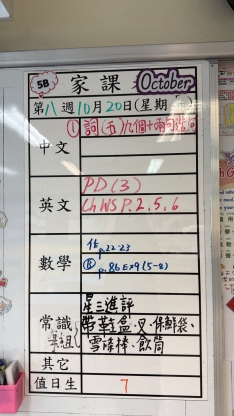 5B 家課 October
第八週10月20日(星期 )
中文 ① 詞(五)
英文 PD(3)
Ch WS P.2.5.6
數學 作p.22-23
Ⓑ p.86 Ex9(5-8)
星三進評
常識 帶鞋盒、叉、保鮮袋、
雪糕棒、飲筒
其它
值日生 7